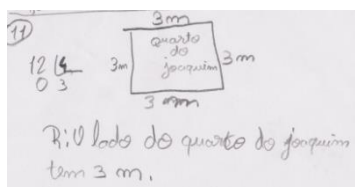 11
3 m
12 4
0 3
3m
quarto
do
joaquim
3 m
3 m
R: O lado do quarto do joaquim
tem 3 m.